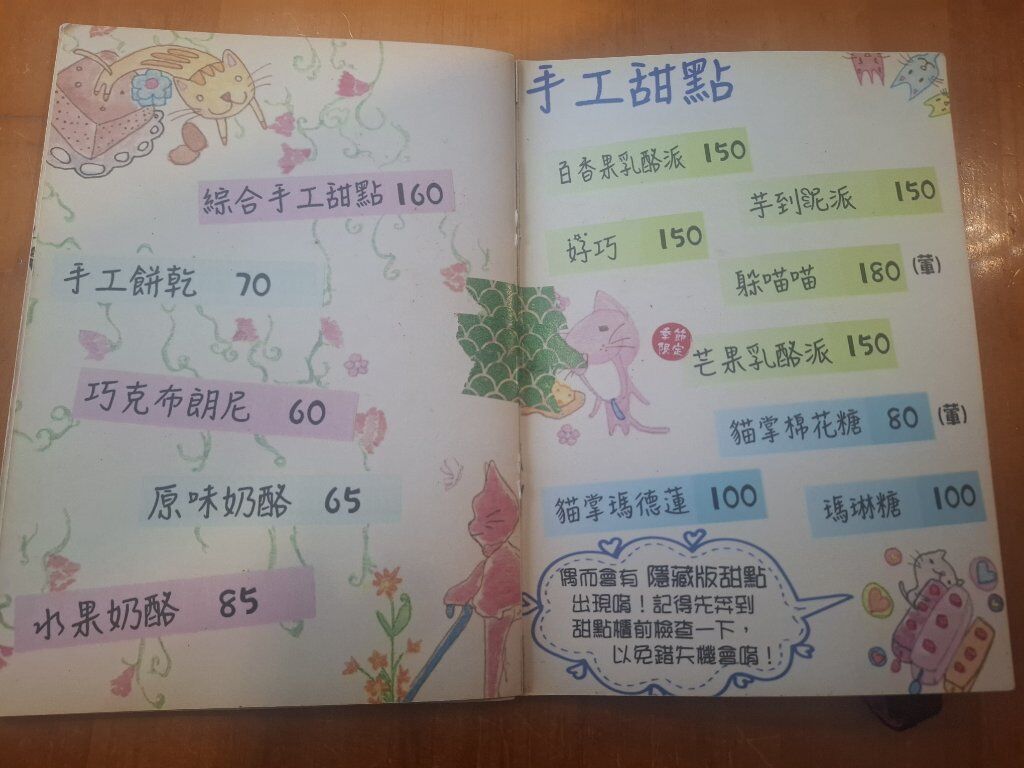 綜合手工甜點 160
手工餅乾 70
巧克布朗尼 60
原味奶酪 65
水果奶酪 85
手工甜點
百香果乳酪派 150
芋到泥派 150
好巧 150
躲喵喵 180 (葷)
季節
限定
芒果乳酪派 150
貓掌棉花糖 80 (葷)
貓掌瑪德蓮 100
瑪琳糖 100
偶而會有 隱藏版甜點
出現唷！記得先奔到
甜點櫃前檢查一下，
以免錯失機會唷！